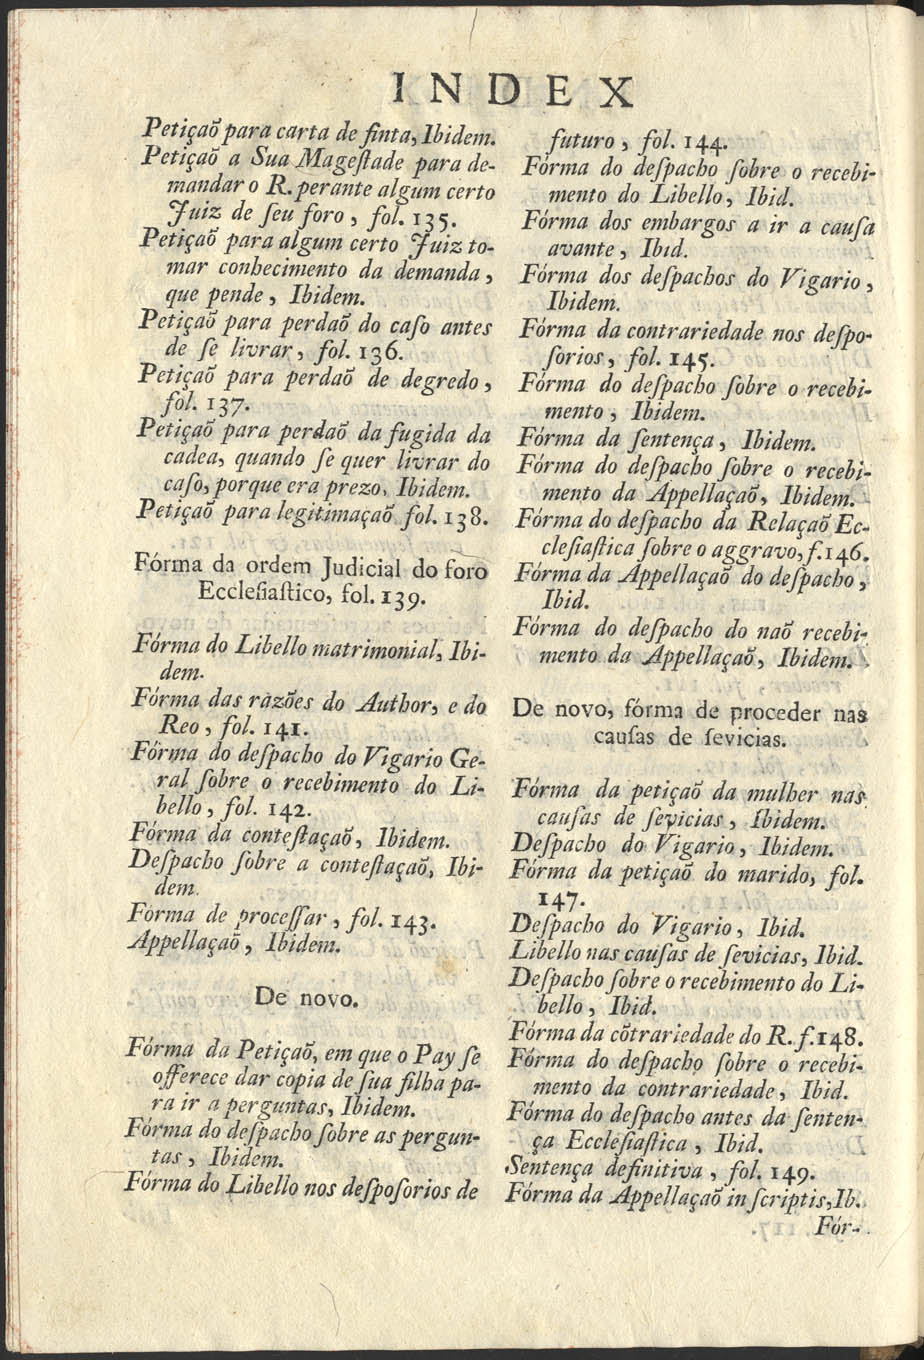 INDEX
Petiçaõ para carta de finta, Ibidem.
Petiçaõ a Sua Mageſtade para de-
mandar o R. perante algum certo
Juiz de ſeu foro, fol. 135.
Petiçaõ para algum certo Juiz to-
mar conhecimento da demanda,
que pende, Ibidem.
Petiçaõ para perdaõ do caſo antes
de ſe livrar, fol. 136.
Petiçaõ para perdaõ de degredo,
fol. 137.
Petiçaõ para perdaõ da fugida da
cadea, quando ſe quer livrar do
caſo, porque era prezo, Ibidem.
Petiçaõ para legitimaçaõ fol. 138.
Fórma da ordem Judicial do foro
Eccleſiaſtico, fol. 139.
Fórma do Libello matrimonial, Ibi-
dem.
Fórma das razões do Author, e do
Reo, fol. 141.
Fórma do deſpacho do Vigario Ge-
ral ſobre o recebimento do Li-
bello, fol. 142.
Fórma da conteſtaçaõ, Ibidem.
Deſpacho ſobre a conteſtaçaõ, Ibi-
dem.
Fórma de proceſſar, fol. 143.
Appellaçaõ, Ibidem.
De novo.
Fórma da Petiçaõ, em que o Pay ſe
offerece dar copia de ſua filha pa-
ra ir a perguntas, Ibidem.
Fórma do deſpacho ſobre as pergun-
tas, Ibidem.
Fórma do Libello nos deſpoſorios de
futuro, fol. 144.
Fórma do deſpacho ſobre o recebi-
mento do Libello, Ibid.
Fórma dos embargos a ir a cauſa
avante, Ibid.
Fórma dos deſpachos do Vigario,
Ibidem.
Fórma da contrariedade nos deſpo-
ſorios, fol. 145.
Fórma do deſpacho ſobre o recebi-
mento, Ibidem.
Fórma da ſentença, Ibidem.
Fórma do deſpacho ſobre o recebi-
mento da Appellaçaõ, Ibidem.
Fórma do deſpacho da Relaçaõ Ec-
cleſiaſtica ſobre o aggravo, f. 146.
Fórma da Appellaçaõ do deſpacho,
Ibid.
Fórma do deſpacho do naõ recebi-
mento da Appellaçaõ, Ibidem.
De novo, fórma de proceder nas
cauſas de ſevicias.
Fórma da petiçaõ da mulher nas
cauſas de ſevicias, Ibidem.
Deſpacho do Vigario, Ibidem.
Fórma da petiçaõ do marido, fol.
147.
Deſpacho do Vigario, Ibid.
Libello nas cauſas de ſevicias, Ibid.
Deſpacho ſobre o recebimento do Li-
bello, Ibid.
Fórma da cõtrariedade do R. f. 148.
Fórma do deſpacho ſobre o recebi-
mento da contrariedade, Ibid.
Fórma do deſpacho antes da ſenten-
ça Eccleſiaſtica, Ibid.
Sentença definitiva, fol. 149.
Fórma da Appellaçaõ in ſcriptis, Ib.
Fór-